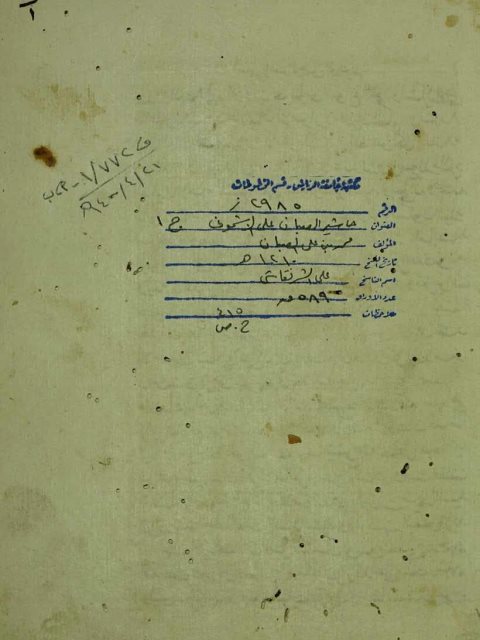 ١
مكتبة جامعة الرياض - قسم المخطوطات
الرقم ٢٩٨٥ ز
العنوان حاشية الصبان على الأشموني ج ١
المؤلف محمد بن علي الصبان
تاريخ النسخ ١٢١٠ هـ
اسم الناسخ علي
عدد الأوراق ٥٨٩ ق
ملاحظات ٤١٥
ح . ص